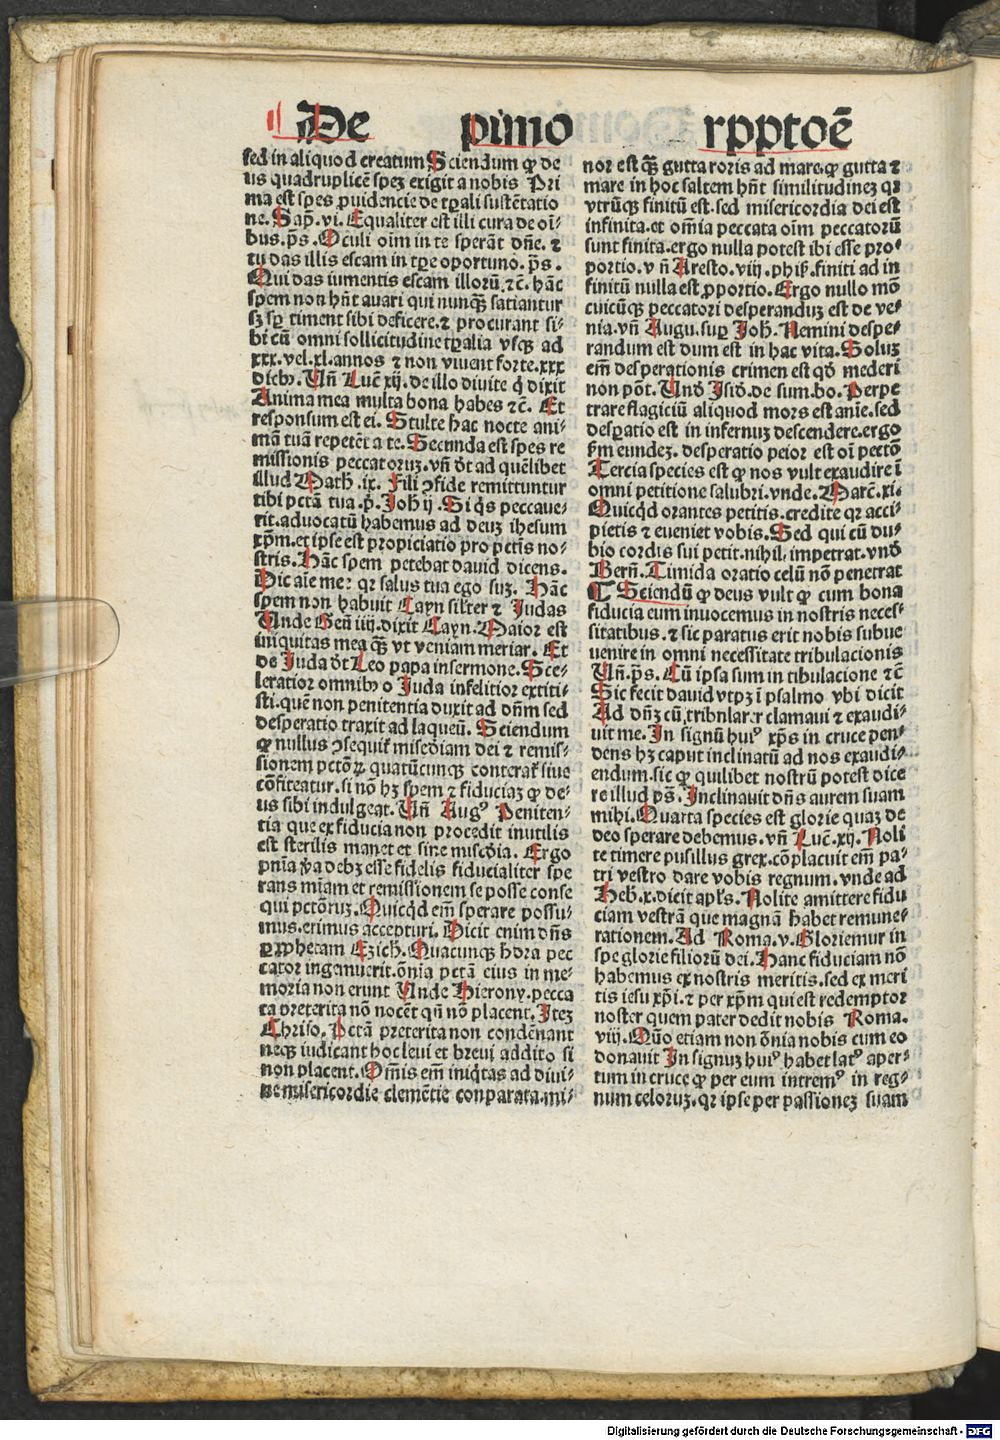 De pimo rpptoē
sed in aliquod creatum Sciendum ꝙ de
us quadruplicē spez exigit a nobis Pri
ma est spes ꝓuidencie de tꝑali sustētatio
ne. Sap̄. vi. Equaliter est illi cura de oī-
bus. p̄s. Oculi oīm in te sperāt dn̄e. ⁊
tu das illis escam in tꝑe oportuno. p̄s.
Qui das iumentis escam illorū. ⁊c̄. hāc
spem non hn̄t auari qui nunqꝫ̄ satiantur
sꝫ sꝑ timent sibi deficere. ⁊ procurant si-
bi cū omni sollicitudine tꝑalia vsqꝫ ad
xxx. vel. xl. annos ⁊ non viuent forte. xxx
dieb⁹. Un̄ Luc̄ xij. de illo diuite q̄ dixit
Anima mea multa bona habes ⁊c̄. Et
responsum est ei. Stulte hac nocte ani-
mā tuā repetēt a te. Secunda est spes re
missionis peccatoruꝫ. vn̄ dt̄ ad quēlibet
illud Math̄. ix. Fili ꝯfide remittuntur
tibi pctā tua. p̄. Joh̄ ij. Si qͥs peccaue-
rit. aduocatū habemus ad deuꝫ ihesum
xp̄m. et ipse est propiciatio pro pctīs no-
stris. Hāc spem petebat dauid dicens.
Dic aīe mee qꝛ salus tua ego suꝫ. Hāc
spem non habuit Cayn silr̄ter ⁊ Judas
Unde Gen̄ iiij. dixit Cayn. Maior est
iniquitas mea qꝫ̄ vt veniam meriar. Et
de Juda dt̄ Leo papa in sermone. Sce-
leratior omnib⁹ o Juda infelitior extiti-
sti. quē non penitentia duxit ad dn̄m sed
desperatio traxit ad laqueū. Sciendum
ꝙ nullus ꝯsequit̄ mis̄diam dei ⁊ remis-
sionem pctōꝝ quatūcunqꝫ conterat̄ siue
cōfiteatur. si nō hꝫ spem ⁊ fiduciaꝫ ꝙ de-
us sibi indulgeat. Un̄ Aug⁹ Peniten-
tia que ex fiducia non procedit inutilis
est sterilis manet et sine misc̄dia. Ergo
pn̄ia v̄a debꝫ esse fidelis fiducialiter spe
rans mīam et remissionem se posse conse
qui pctōruꝫ. Quicqͥd em̄ sperare possu-
mus. erimus accepturi. Dicit enim dn̄s
ꝑ ꝓphetam Ezich̄. Quacunqꝫ hora pec
cator ingemuerit. ōnia pctā eius in me-
moria non erunt Unde Hierony. pecca
ta preterita nō nocēt qn̄ nō placent. Iteꝫ
Chriso. Pctā preterita non condēnant
neqꝫ iudicant hoc leui et breui addito si
non placent. Om̄is em̄ iniqͥtas ad diui-
ne misericordie clemētie conparata. mi-
nor est qꝫ̄ gutta roris ad mare. ꝙ gutta ⁊
mare in hoc saltem hn̄t similitudineꝫ qꝛ
vtrūqꝫ finitū est. sed misericordia dei est
infinita. et om̄ia peccata oīm peccatorū
sunt finita. ergo nulla potest ibi esse pro-
portio. vn̄ Aresto. viij. phiẜ. finiti ad in
finitū nulla est ꝓportio. Ergo nullo mō
cuicūqꝫ peccatori desperanduꝫ est de ve-
nia. vn̄ Augu. suꝑ Joh̄. Nemini despe-
randum est dum est in hac vita. Soluꝫ
em̄ desperationis crimen est qd̄ mederi
non pōt. Und̄ Isid̄. de sum. bo. Perpe
trare flagiciū aliquod mors est anīe. sed
desꝑatio est in infernuꝫ descendere. ergo
ẜm eundeꝫ. desperatio peior est oī pcctō
Tercia species est ꝙ nos vult exaudire ī
omni petitione salubri. vnde. Marc̄. xi.
Quicqͥd orantes petitis. credite qꝛ acci-
pietis ⁊ eueniet vobis. Sed qui cū du-
bio cordis sui petit. nihil impetrat. vnd̄
Bern̄. Timida oratio celū nō penetrat
¶ Sciendū ꝙ deus vult ꝙ cum bona
fiducia eum inuocemus in nostris neces-
sitatibus. ⁊ sic paratus erit nobis subue
uenire in omni necessitate tribulacionis
Un̄. p̄s. Cū ipsa sum in tibulacione ⁊c̄
Sic fecit dauid vtpꝫ ī psalmo vbi dicit
Ad dn̄ꝫ cū tribularer clamaui ⁊ exaudi-
uit me. In signū hui⁹ xp̄s in cruce pen-
dens hꝫ caput inclinatū ad nos exaudi-
endum. sic ꝙ quilibet nostrū potest dice
re illud p̄s. Inclinauit dn̄s aurem suam
mihi. Quarta species est glorie quaꝫ de
deo sperare debemus. vn̄ Luc̄. xij. Noli
te timere pusillus grex. cōplacuit em̄ pa-
tri vestro dare vobis regnum. vnde ad
Heb̄. x. dicit apl̄s. Nolite amittere fidu
ciam vestrā que magnā habet remune-
rationem. Ad Roma. v. Gloriemur in
spe glorie filiorū dei. Hanc fiduciam nō
habemus ex nostris meritis. sed ex meri
tis iesu xp̄i. ⁊ per xp̄m qui est redemptor
noster quem pater dedit nobis Roma.
viij. Quō etiam non ōnia nobis cum eo
donauit In signuꝫ hui⁹ habet lat⁹ aper-
tum in cruce ꝙ per eum intrem⁹ in reg-
num celoruꝫ. qꝛ ipse per passioneꝫ suam
Digitalisierung gefördert durch die Deutsche Forschungsgemeinschaft - DFG